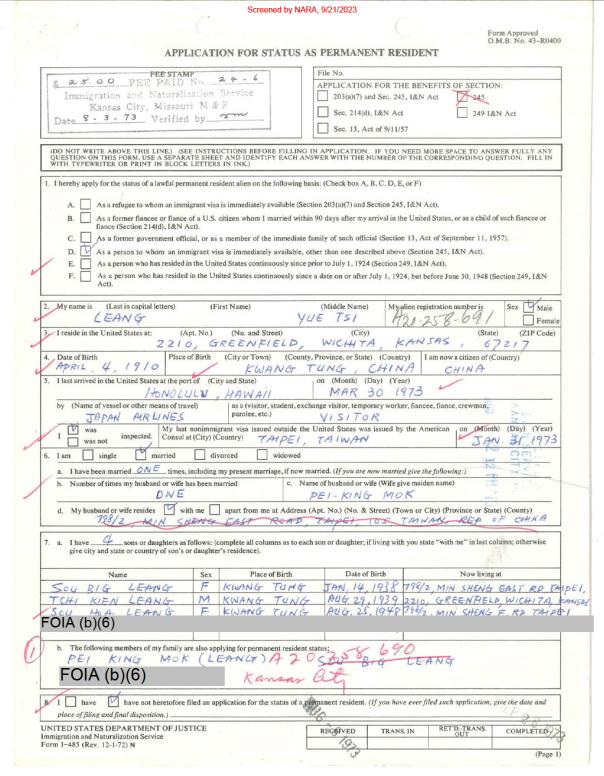 Screened by NARA, 9/21/2023
Form Approved
O.M.B. No. 43-R0400
APPLICATION FOR STATUS AS PERMANENT RESIDENT
FEE STAMP
$ 25.00 FEE PAID No. 24-6
Immigration and Naturalization Service
Kansas City, Missouri M & F
Date 8-3-73 Verified by
File No.
APPLICATION FOR THE BENEFITS OF SECTION:
203(a)(7) and Sec. 245, I&N Act 245
Sec. 214(d), I&N Act 249 I&N Act
Sec. 13, Act of 9/11/57
(DO NOT WRITE ABOVE THIS LINE.) (SEE INSTRUCTIONS BEFORE FILLING IN APPLICATION. IF YOU NEED MORE SPACE TO ANSWER FULLY ANY
QUESTION ON THIS FORM, USE A SEPARATE SHEET AND IDENTIFY EACH ANSWER WITH THE NUMBER OF THE CORRESPONDING QUESTION. FILL IN
WITH TYPEWRITER OR PRINT IN BLOCK LETTERS IN INK.)
1. I hereby apply for the status of a lawful permanent resident alien on the following basis: (Check box A, B, C, D, E, or F)
A. As a refugee to whom an immigrant visa is immediately available (Section 203(a)(7) and Section 245, I&N Act).
B. As a former fiancee or fiance of a U.S. citizen whom I married within 90 days after my arrival in the United States, or as a child of such fiancee or
fiance (Section 214(d), I&N Act).
C. As a former government official, or as a member of the immediate family of such official (Section 13, Act of September 11, 1957).
D. As a person to whom an immigrant visa is immediately available, other than one described above (Section 245, I&N Act).
E. As a person who has resided in the United States continuously since prior to July 1, 1924 (Section 249, I&N Act).
F. As a person who has resided in the United States continuously since a date on or after July 1, 1924, but before June 30, 1948 (Section 249, I&N
Act).
2. My name is (Last in capital letters) (First Name) (Middle Name) My alien registration number is Sex Male
LEANG YUE TSI A20-258-691 Female
3. I reside in the United States at: (Apt. No.) (No. and Street) (City) (State) (ZIP Code)
2210, GREENFIELD, WICHITA, KANSAS, 67217
4. Date of Birth Place of Birth (City or Town) (County, Province, or State) (Country) I am now a citizen of (Country)
APRIL, 4, 1910 KWANG TUNG, CHINA CHINA
5. I last arrived in the United States at the port of (City and State) on (Month) (Day) (Year)
HONOLULU, HAWAII MAR 30 1973
by (Name of vessel or other means of travel) as a (visitor, student, exchange visitor, temporary worker, fiancee, fiance, crewman,
parolee, etc.)
JAPAN AIRLINES VISITOR
I was was not inspected. My last nonimmigrant visa issued outside the United States was issued by the American on (Month) (Day) (Year)
Consul at (City) (Country) TAIPEI, TAIWAN JAN. 31, 1973
6. I am single married divorced widowed
a. I have been married ONE times, including my present marriage, if now married. (If you are now married give the following:)
b. Number of times my husband or wife has been married c. Name of husband or wife (Wife give maiden name)
ONE PEI-KING MOK
d. My husband or wife resides with me apart from me at Address (Apt. No.) (No. & Street) (Town or City) (Province or State) (County)
798/2 MIN SHENG EAST ROAD, TAIPEI, 105 TAIWAN REP OF CHINA
7. a. I have 4 sons or daughters as follows: (complete all columns as to each son or daughter; if living with you state "with me" in last column; otherwise
give city and state or country of son's or daughter's residence).
Name Sex Place of Birth Date of Birth Now living at
SOU BIG LEANG F KWANG TUNG JAN. 14, 1938 798/2, MIN SHENG EAST RD TAIPEI,
TCHI KIEN LEANG M KWANG TUNG AUG. 29, 1939 2210, GREENFIELD, WICHITA, KANSAS
SOU HOA LEANG F KWANG TUNG AUG. 25, 1948 798/2, MIN SHENG E. RD TAIPEI
FOIA (b)(6)
1
b. The following members of my family are also applying for permanent resident status:
PEI KING MOK (LEANG) A 20 258 690 SOU BIG LEANG
FOIA (b)(6) Kansas City
8. I have have not heretofore filed an application for the status of a permanent resident. (If you have ever filed such application, give the date and
place of filing and final disposition.)
UNITED STATES DEPARTMENT OF JUSTICE
Immigration and Naturalization Service
Form I-485 (Rev. 12-1-72) N
RECEIVED TRANS. IN RET'D.-TRANS. OUT COMPLETED
(Page 1)